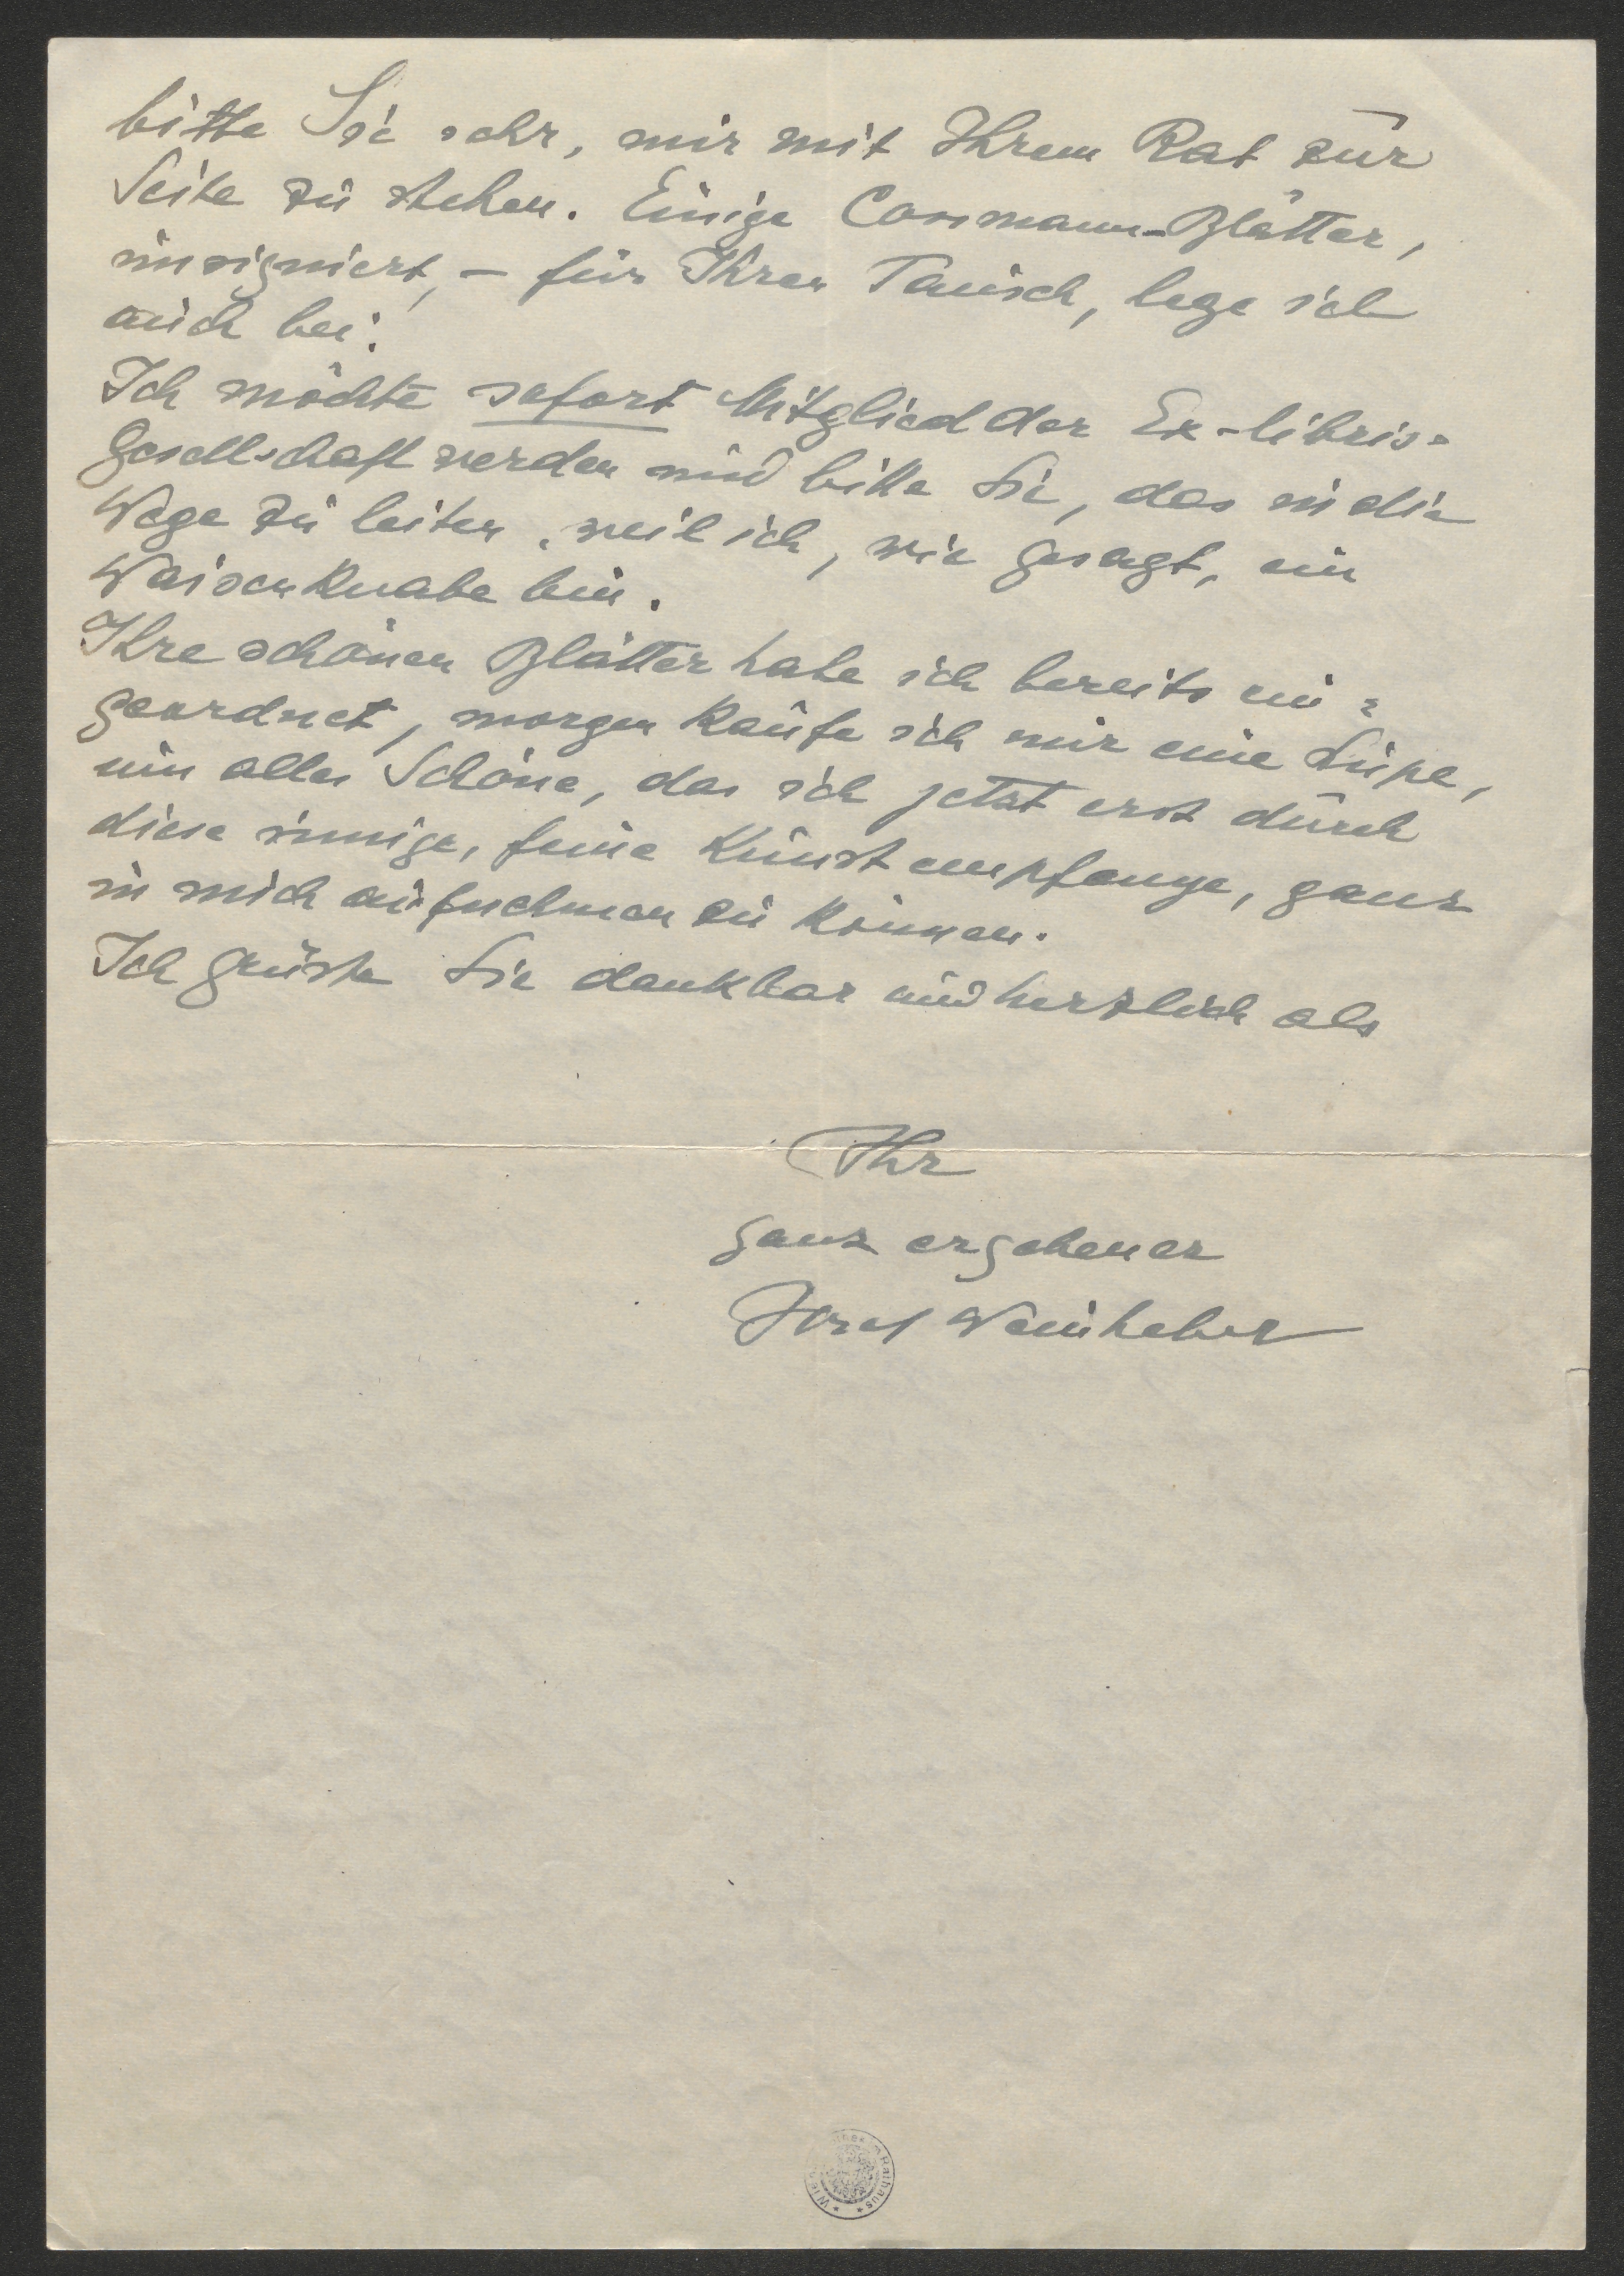 bitte Sie sehr, mir mit Ihrem Rat zur
Seite zu stehen. Einige Cossmann-Blätter,
unsigniert, – für Ihren Tausch, lege ich
auch bei.
Ich möchte sofort Mitglied der Ex-libris-
Gesellschaft werden und bitte Sie, das in die
Wege zu leiten, weil ich, wie gesagt, ein
Waisenknabe bin.
Ihre schönen Blätter habe ich bereits ein-
geordnet, morgen kaufe ich mir eine Lupe,
um alles Schöne, das ich jetzt erst durch
diese innige, feine Kunst empfange, ganz
in mich aufnehmen zu können.
Ich grüsse Sie dankbar und herzlich als
Ihr
ganz ergebener
Josef Weinheber
Rathaus